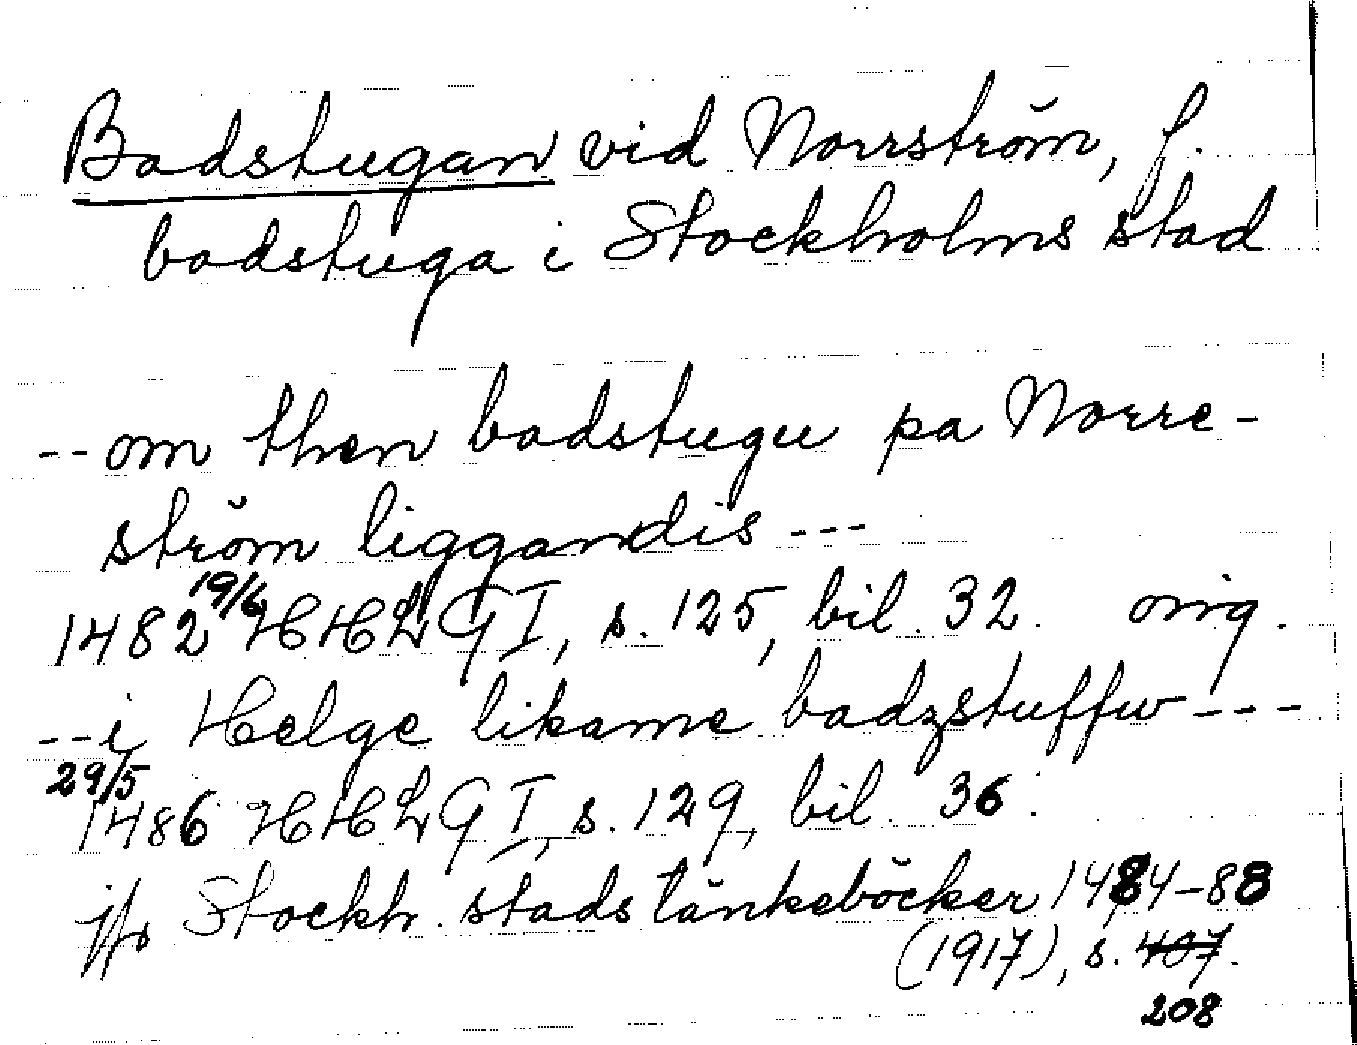 Badstugan vid Norrström, f.
badstuga i Stockholms stad
-- om then badstugu pa Norre-
ström liggandis ---
1482 19/6 HHLG I, s. 125, bil. 32. orig.
-- i Helge likame badzstuffw ---
29/5
1486 HHLG I, s. 129, bil. 36.
jfr Stockh. stads tänkeböcker 1484-88
(1917), s. 407.
208